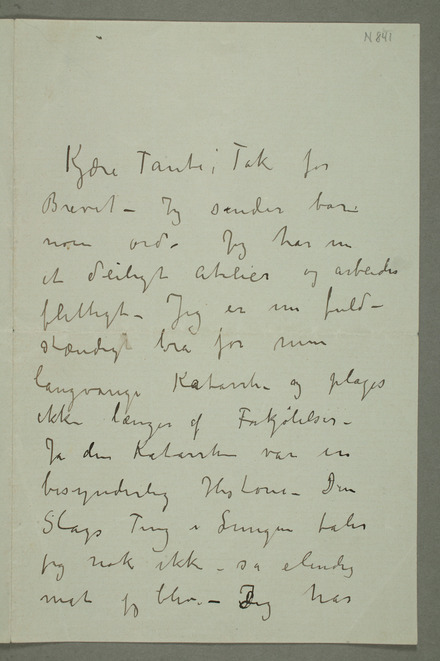 N 841
Kjære Tante; Tak for
Brevet – Jeg sender bare
noen ord – Jeg har nu
et deiligt atelier og arbeider
flittigt – Jeg er nu fuld-
stændigt bra for min
langvarige Katarrh – og plages
ikke længer af Forkjølelser –
Ja den Katarrhen var en
besynderlig Historie – Den
Slags Ting i Lungen taler
jeg nok ikke – så elendig
mat jeg blev. – Jeg har